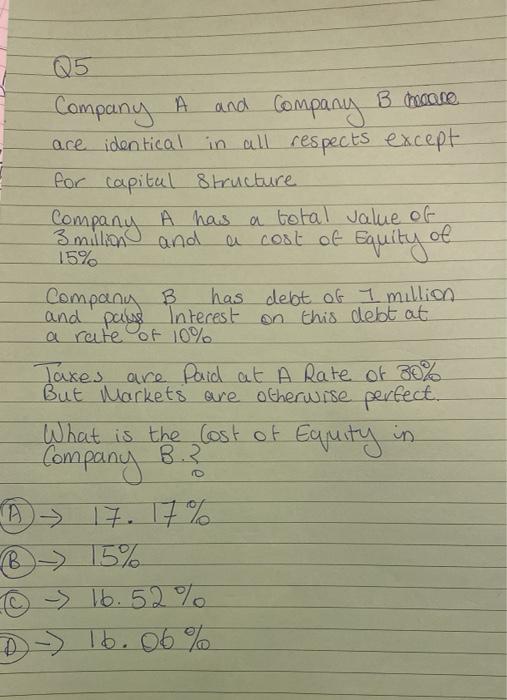 Q5
Company A and Company B
are identical in all respects except
for capital structure
Company A has a total value of
3 million and a cost of Equity of
15%
Company B has debt of 1 million
and pays Interest on this debt at
a rate of 10%
Taxes are Paid at A Rate of 30%
But Markets are otherwise perfect.
What is the Cost of Equity in
Company B.?
A → 17.17%
B → 15%
C → 16.52%
D → 16.06%